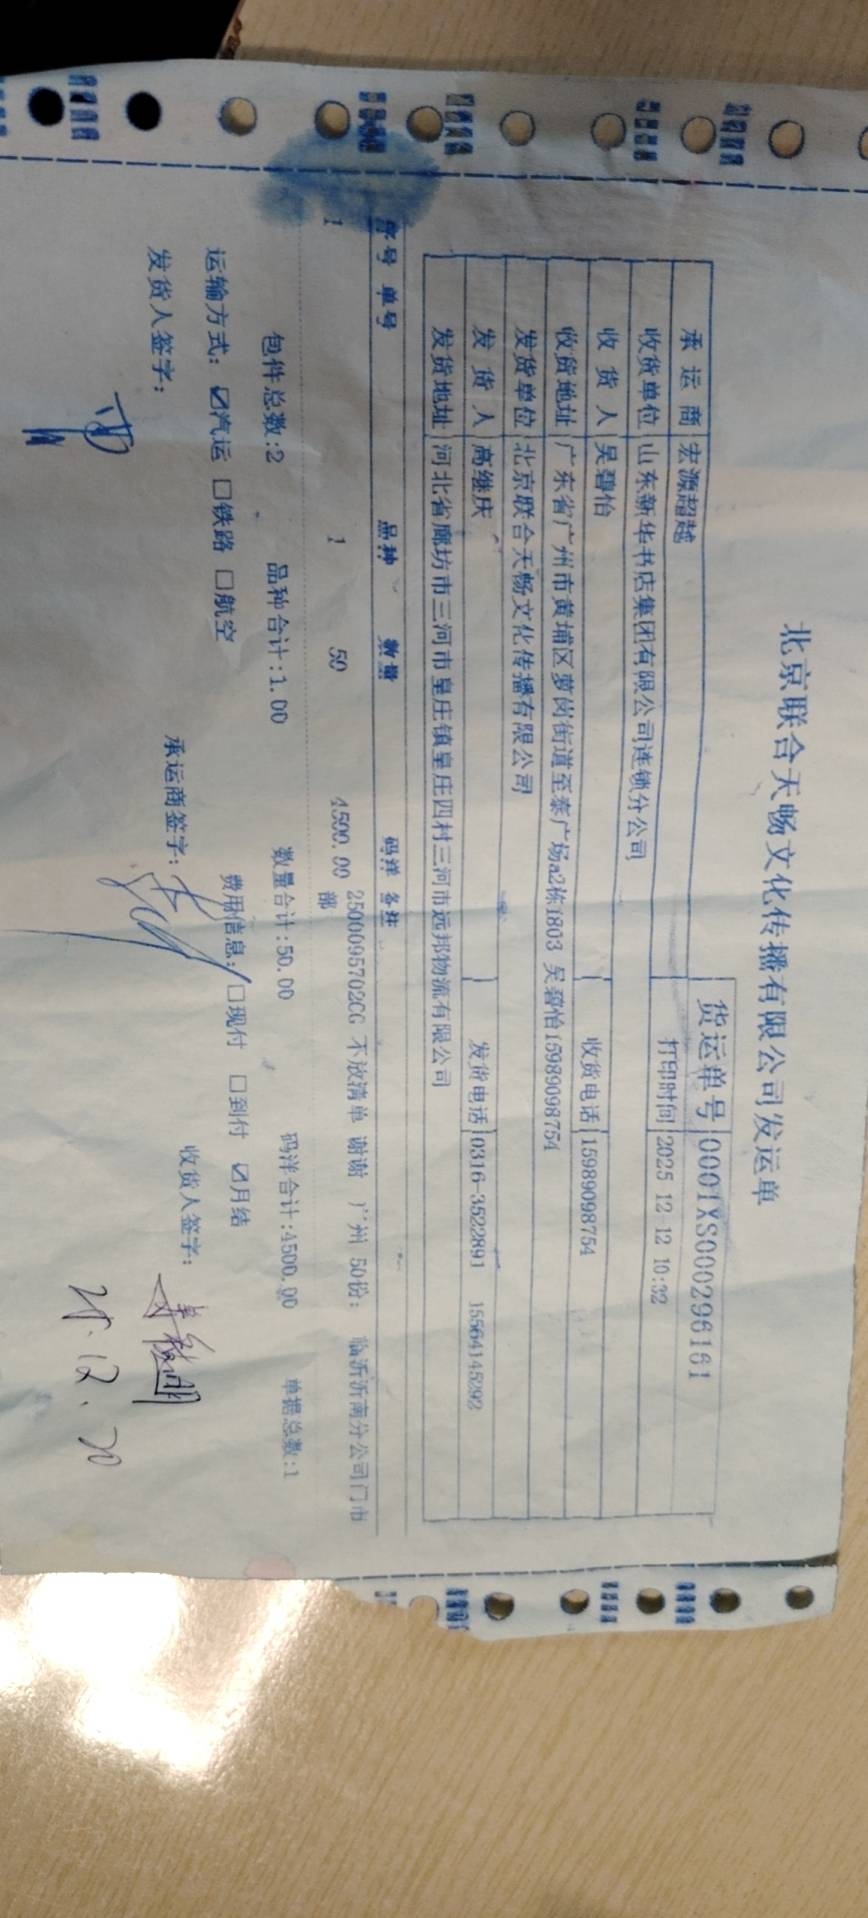 北京联合天畅文化传播有限公司发运单
货运单号 0001XS000296161
承运商 宏源超越 打印时间 2025-12-12 10:32
收货单位 山东新华书店集团有限公司连锁分公司
收货人 吴碧怡 收货电话 15989098754
收货地址 广东省广州市黄埔区萝岗街道至泰广场a2栋1803 吴碧怡15989098754
发货单位 北京联合天畅文化传播有限公司
发货人 高继庆 发货电话 0316-3522891 15564145292
发货地址 河北省廊坊市三河市皇庄镇皇庄四村三河市远邦物流有限公司
序号 单号 品种 数量 码洋 备注
1 1 50 4500.00 2500095702CG 不放清单 谢谢 广州 50份; 临沂沂南分公司门市
部
包件总数:2 品种合计:1.00 数量合计:50.00 码洋合计:4500.00 单据总数:1
运输方式: ☑汽运 □铁路 □航空 费用信息: □现付 □到付 ☑月结
发货人签字: 承运商签字: 收货人签字:
25.12.20